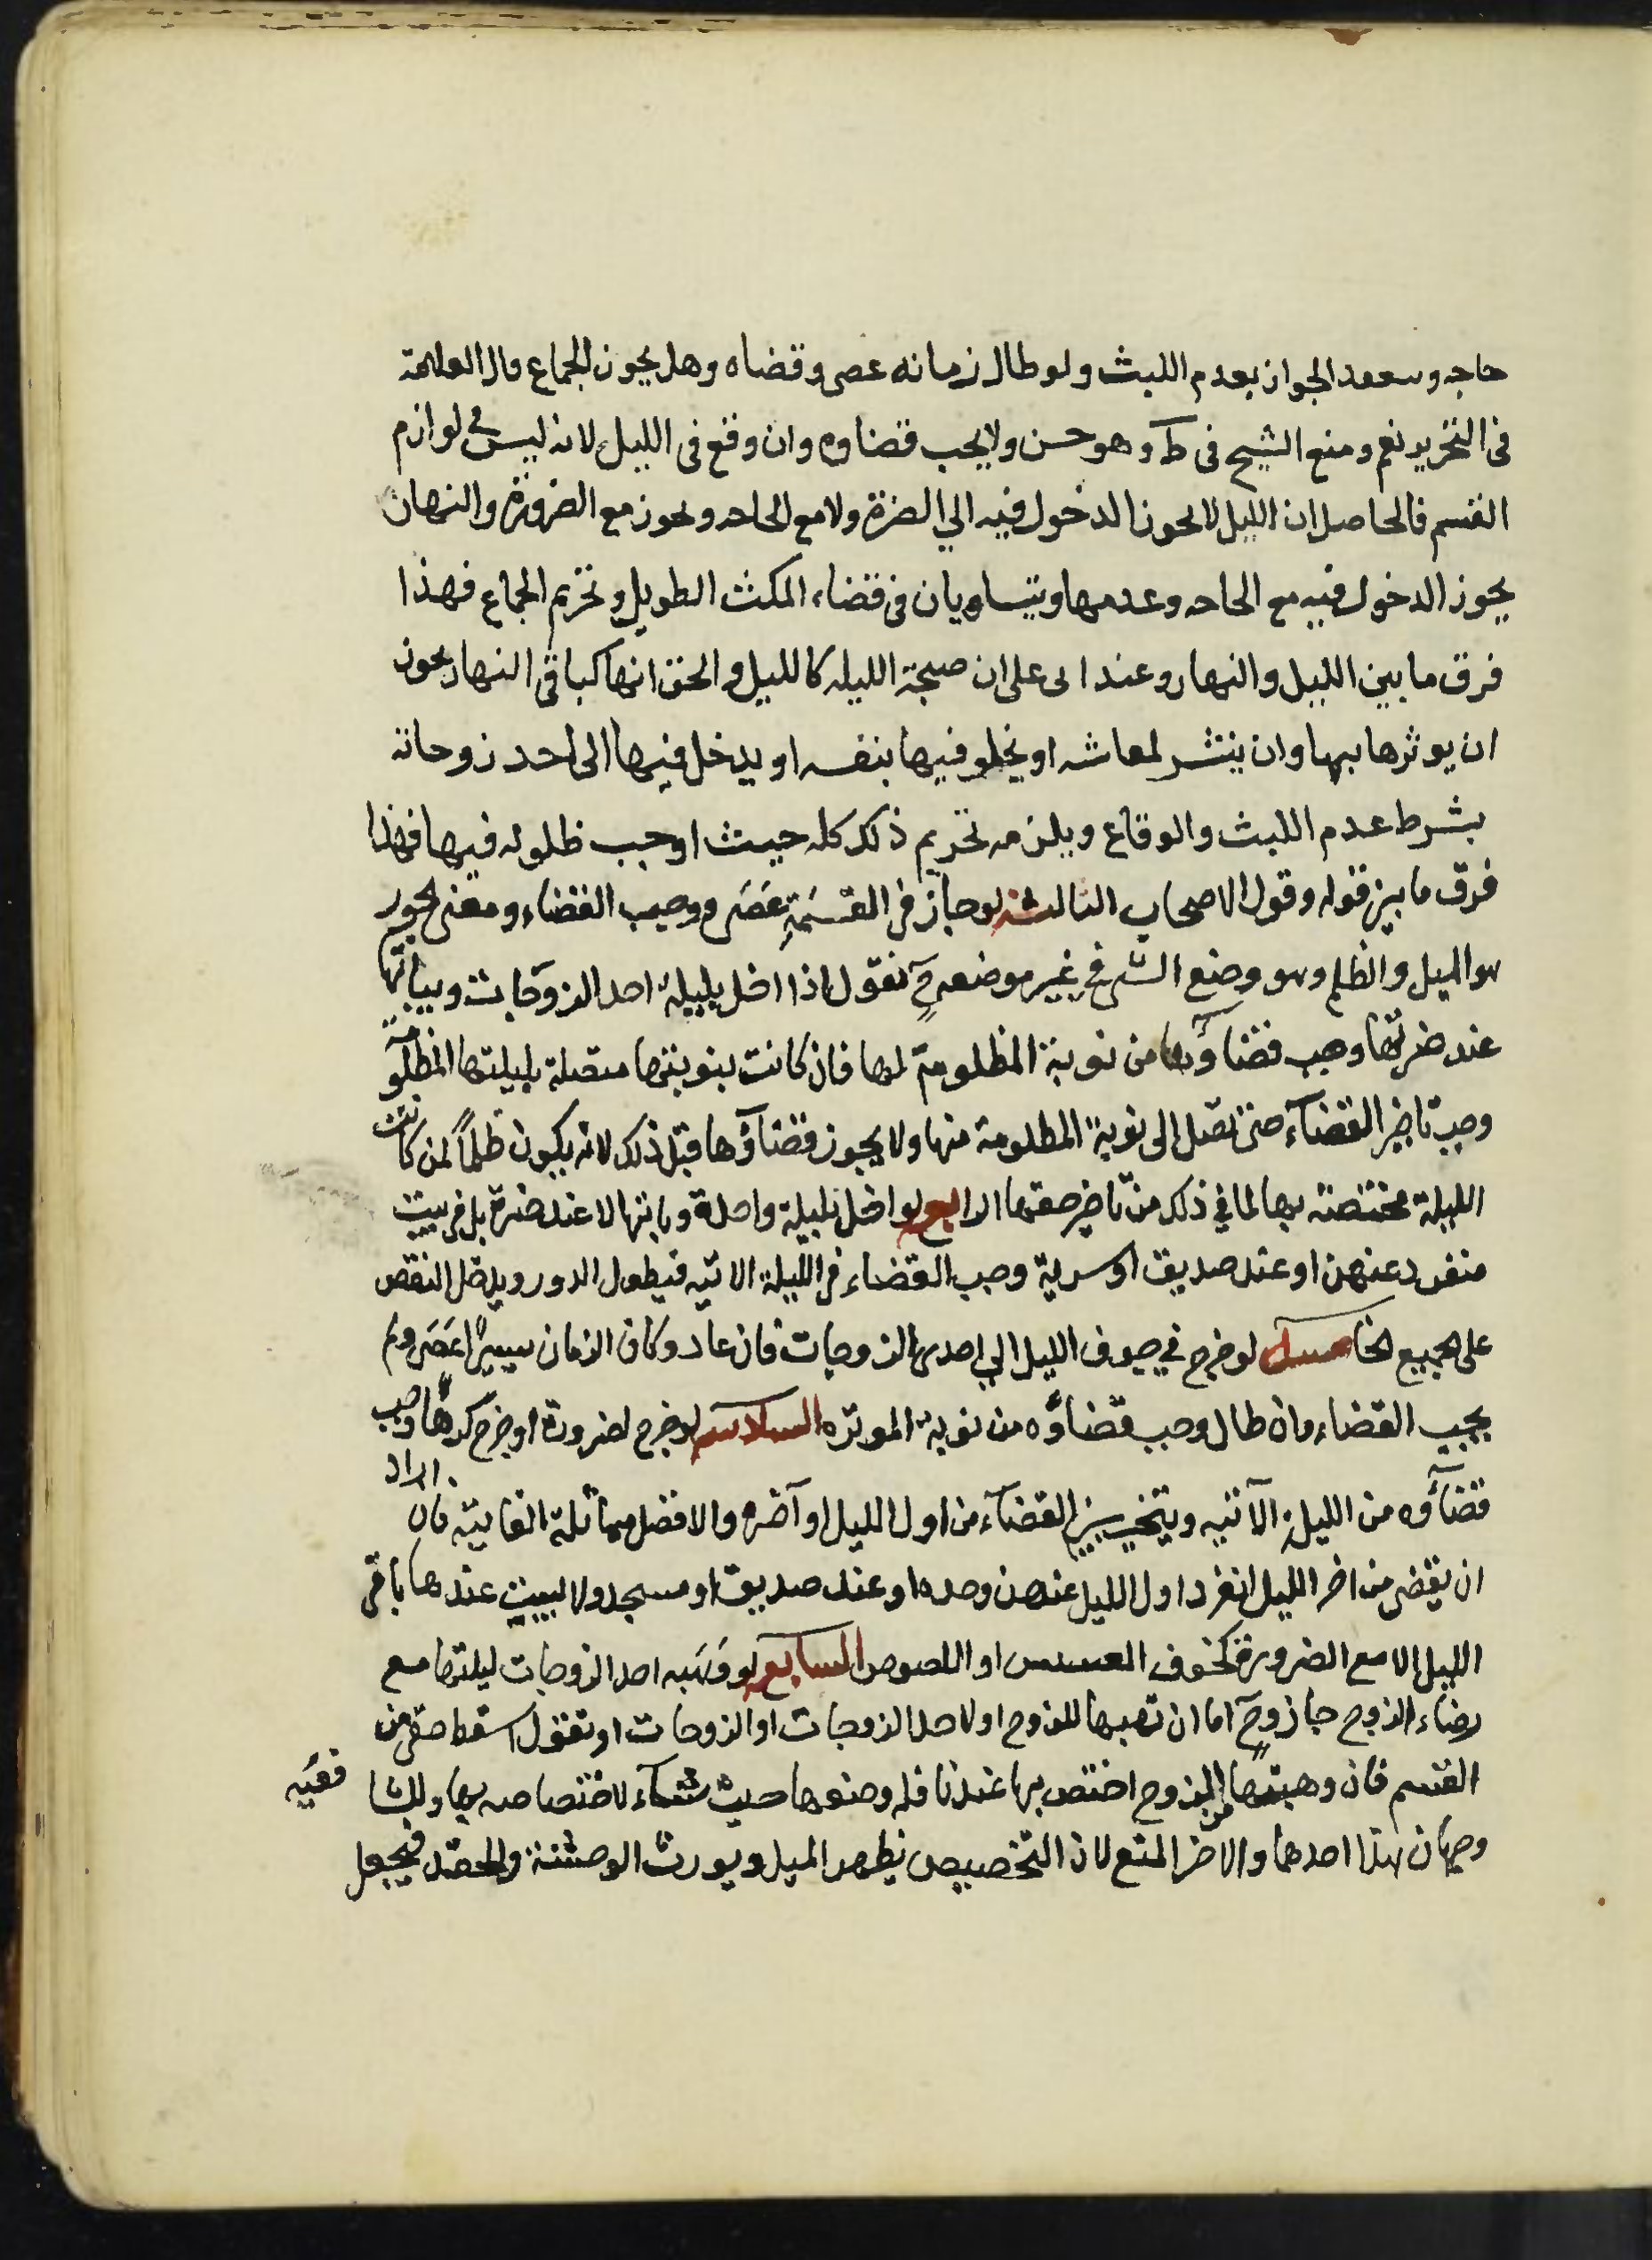 حاجه وسعقد الجواز بعدم اللبث ولو طال زمانه عصى وقضاه وهل يجوز الجماع قال العلامة
فى التحرير نعم ومنع الشيخ فى ط وهو حسن ولا يجب قضاوه وان وقع فى الليل لانه ليس فى لوازم
القسم فالحاصل ان الليل لا يجوز الدخول فيه الي الضرة ولا مع الحاجه ويجوز مع الضرورة والنهار
يجوز الدخول فيه مع الحاجه وعدمها ويتساويان فى قضاء المكث الطويل وتحريم الجماع فهذا
فرق ما بين الليل والنهار وعند ابى على ان صبيحة الليله كالليل والحق انها كباقى النهار يجوز
ان يوثرها بها وان ينتشر لمعاشه او يخلو فيها بنفسه او يدخل فيها الى احد زوجاته
بشرط عدم اللبث والوقاع ويلزمه تحريم ذلك كله حيث اوجب ظلوله فيها فهذا
فرق ما بين قوله وقول الاصحاب الثالثه لو جاز فى القسمة عصى ووجب القضاء ومعنى الجور
هو الميل والظلم وهو وضع الشى في غير موضعه ح نقول اذا اخل بليلة احد الزوجات وبياتها
عند ضرتها وجب قضاؤها من نوبة المظلومة لها فان كانت بنوبتها متصلة بليلتها المظلومة
وجب تاخير القضاء حتى تصل الى نوبة المظلومة منها ولا يجوز قضاؤها قبل ذلك لانه يكون ظلماً لمن كانت
الليلة مختصة بها لما في ذلك من تاخير حقها الرابع لو اخل بليلة واحدة وباتها لا عند ضرة بل فى بيت
منفرد عنهن او عند صديق او سرية وجب القضاء فى الليلة الاتيه فيطول الدور ويدخل النقص
على الجميع الخامسه لو خرج في جوف الليل الي احدى الزوجات فان عاد وكان الزمان يسيراً عصى ولم
يجب القضاء وان طال وجب قضاؤه من نوبة الموثره السادسه لو خرج لضرورة او خرج كرهاً وجب
قضاؤه من الليلة الآتيه ويتخير بين القضاء من اول الليل او آخره والافضل مماثلة الفايته فان اراد
ان يقضى من اخر الليل انفرد اول الليل عنهن وحده او عند صديق او مسجد ولا يبيت عندها باقى
الليل الا مع الضرورة كخوف العسس او اللصوص السابعه لو وهبه احد الزوجات ليلتها مع
رضاء الزوج جاز وح اما ان تهبها للزوج او لاحد الزوجات او الزوجات او تقول اسقط حقى من
القسم فان وهبتها للزوج اختص بها عندنا فله وضعها حيث شاء لاختصاصه بها وللشافعيه
وجهان هذا احدهما والاخر المنع لان التخصيص يظهر الميل ويورث الوحشة والحقد فيجعل